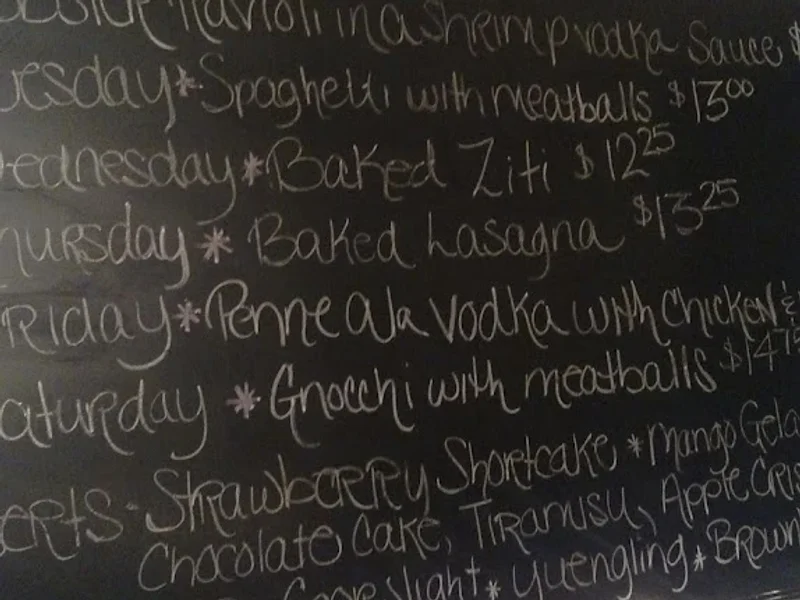 Ravioli in a shrimp vodka Sauce $
uesday * Spaghetti with meatballs $13.00
ednesday * Baked Ziti $12.25
hursday * Baked Lasagna $13.25
riday * Penne ala Vodka with Chicken &
aturday * Gnocchi with meatballs $14.75
erts - Strawberry Shortcake * Mango Gela
Chocolate Cake, Tiramusu, Apple Cris
Coors light * Yuengling * Brown